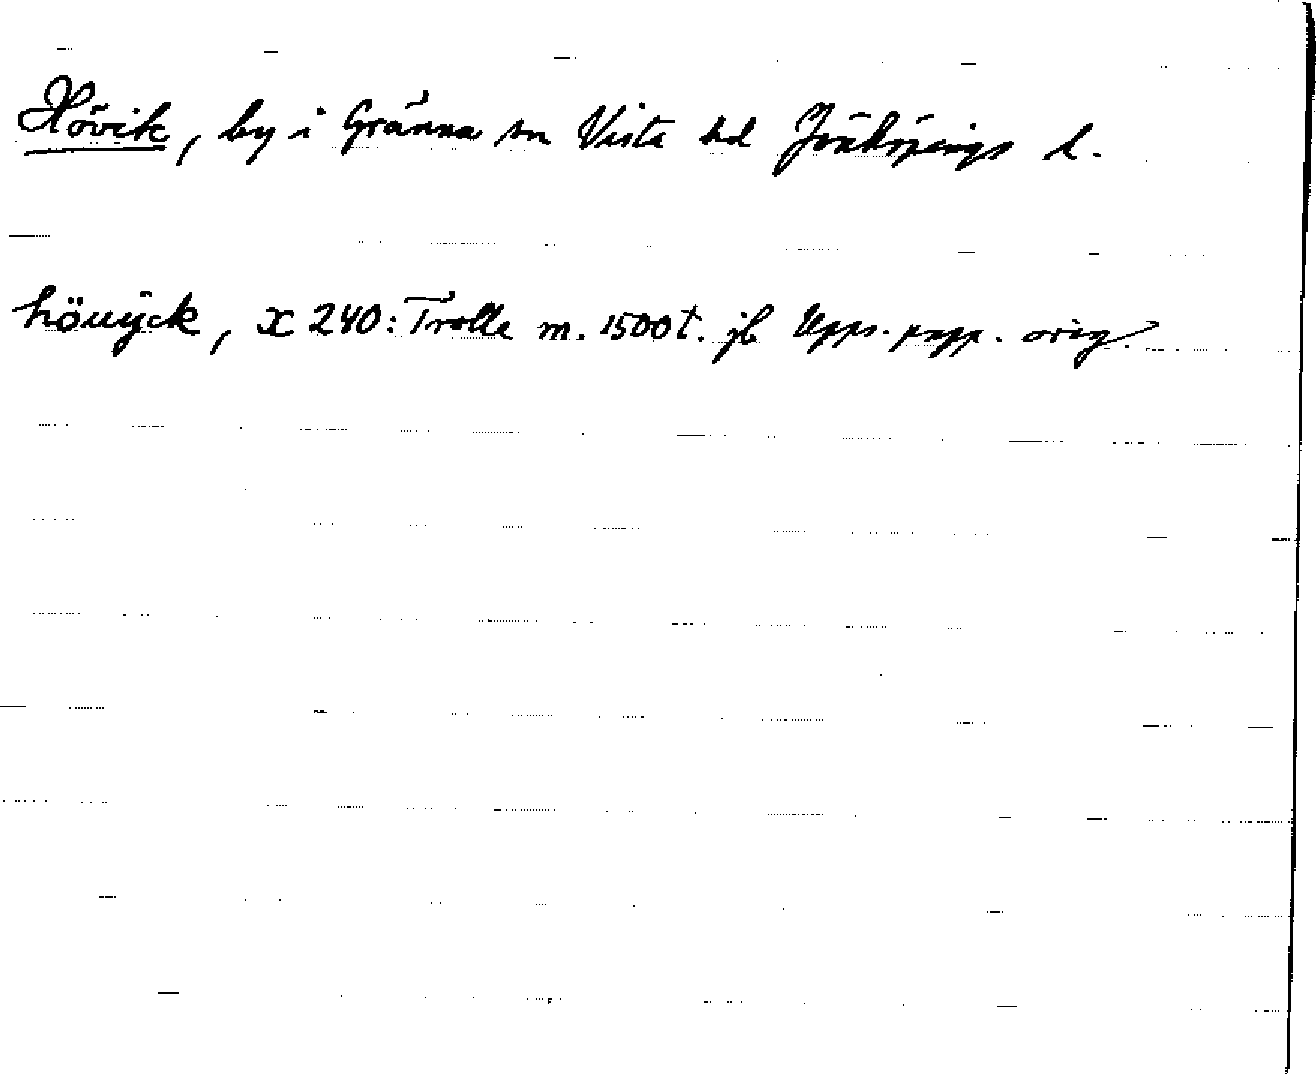 Hövik, by i Gränna sn Vista hd Jönköpings l.
höuÿck, X 240: Trolle m. 1500 t. jb Upps. papp. orig.